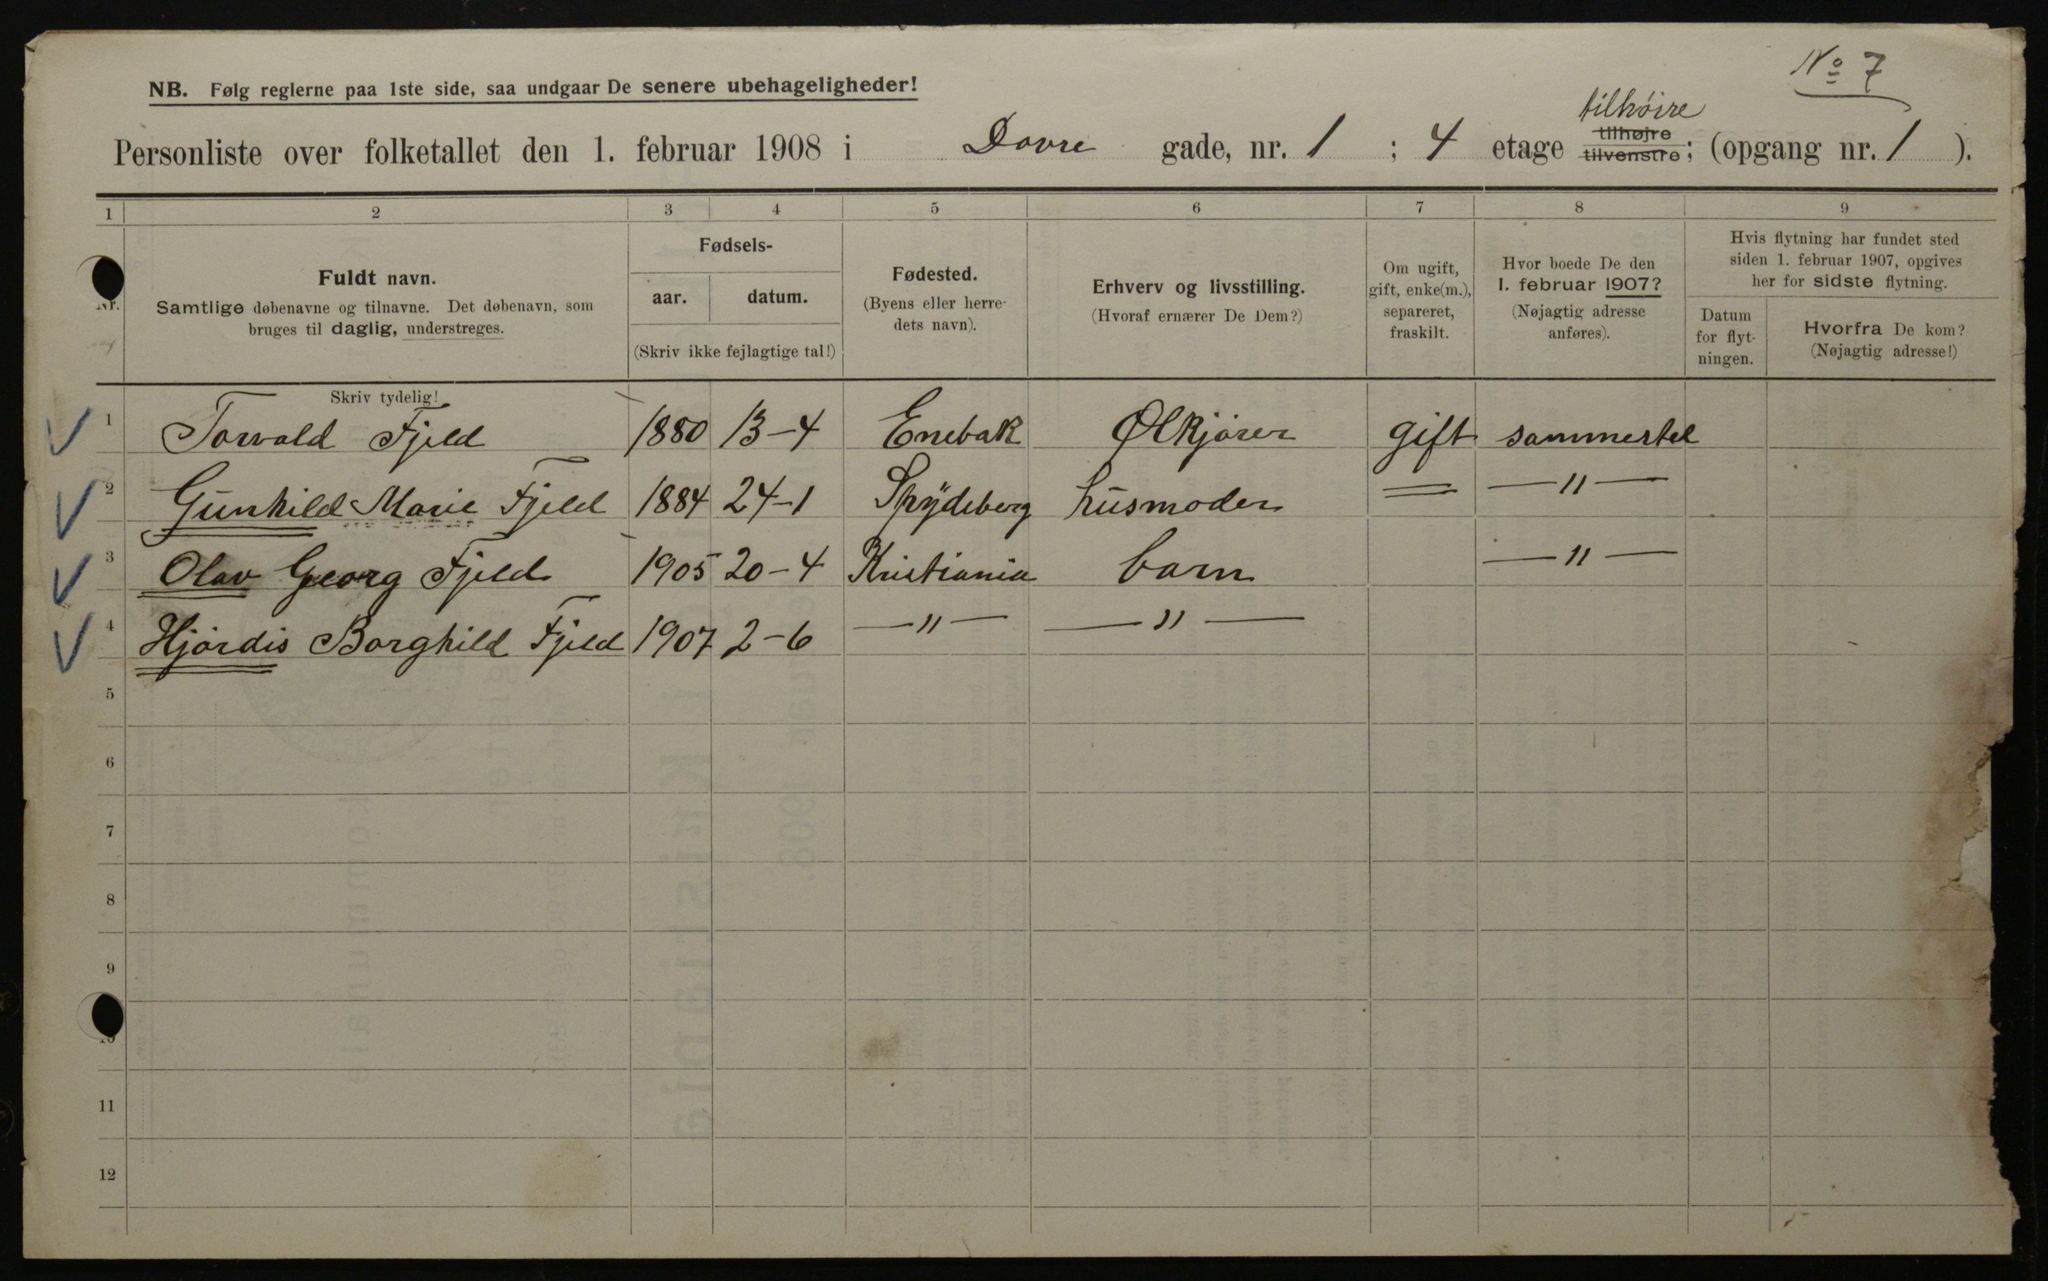 No 7
NB. Følg reglerne paa 1ste side, saa undgaar De senere ubehageligheder!
tilhöire
Personliste over folketallet den 1. februar 1908 i Dovre gade, nr. 1 ; 4 etage tilhøjre tilvenstre; (opgang nr. 1 ).
1 2 3 4 5 6 7 8 9
Nr.
Fuldt navn.
Samtlige døbenavne og tilnavne. Det døbenavn, som
bruges til daglig, understreges.
Fødsels-
aar. datum.
(Skriv ikke fejlagtige tal!)
Fødested.
(Byens eller herre-
dets navn).
Erhverv og livsstilling.
(Hvoraf ernærer De Dem?)
Om ugift,
gift, enke(m.),
separeret,
fraskilt.
Hvor boede De den
1. februar 1907?
(Nøjagtig adresse
anføres).
Hvis flytning har fundet sted
siden 1. februar 1907, opgives
her for sidste flytning.
Datum
for flyt-
ningen.
Hvorfra De kom?
(Nøjagtig adresse!)
Skriv tydelig!
1 Torvald Fjeld 1880 13-4 Enebak Ølkjører gift sammested
2 Gunhild Marie Fjeld 1884 24-1 Spydeberg husmoder — — " —
3 Olav Georg Fjeld 1905 20-4 Kristiania barn — " —
4 Hjördis Borghild Fjeld 1907 2-6 — " — — " —
5
6
7
8
9
10
11
12